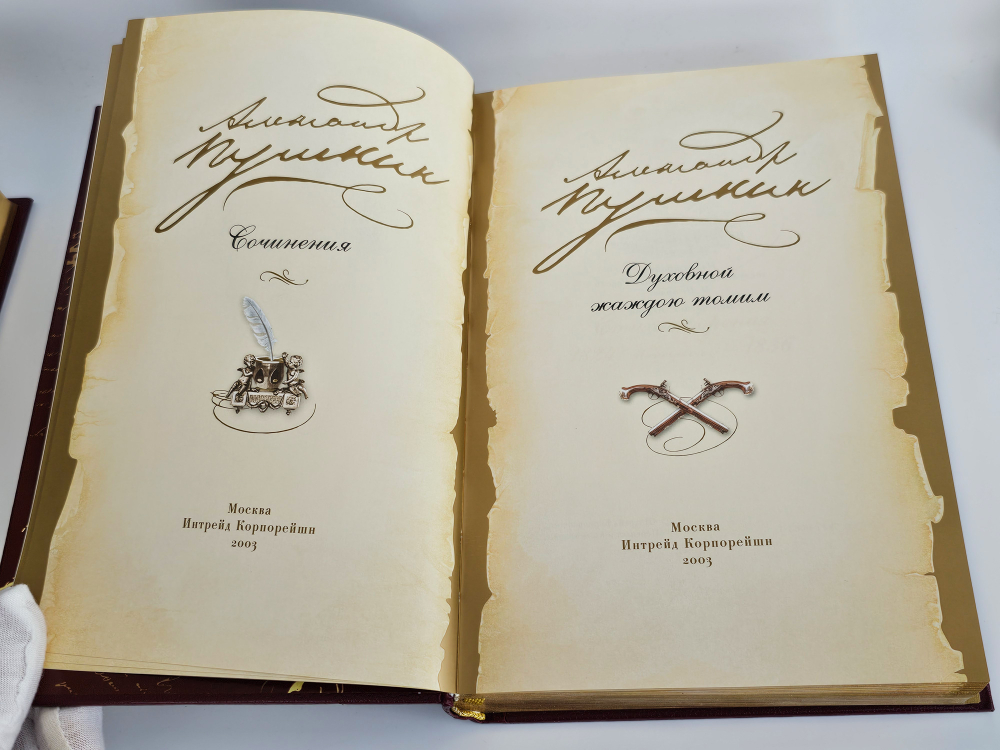 Александр
Пушкин
Сочинения
Москва
Интрейд Корпорейшн
2003
Александр
Пушкин
Духовной
жаждою томим
Москва
Интрейд Корпорейшн
2003